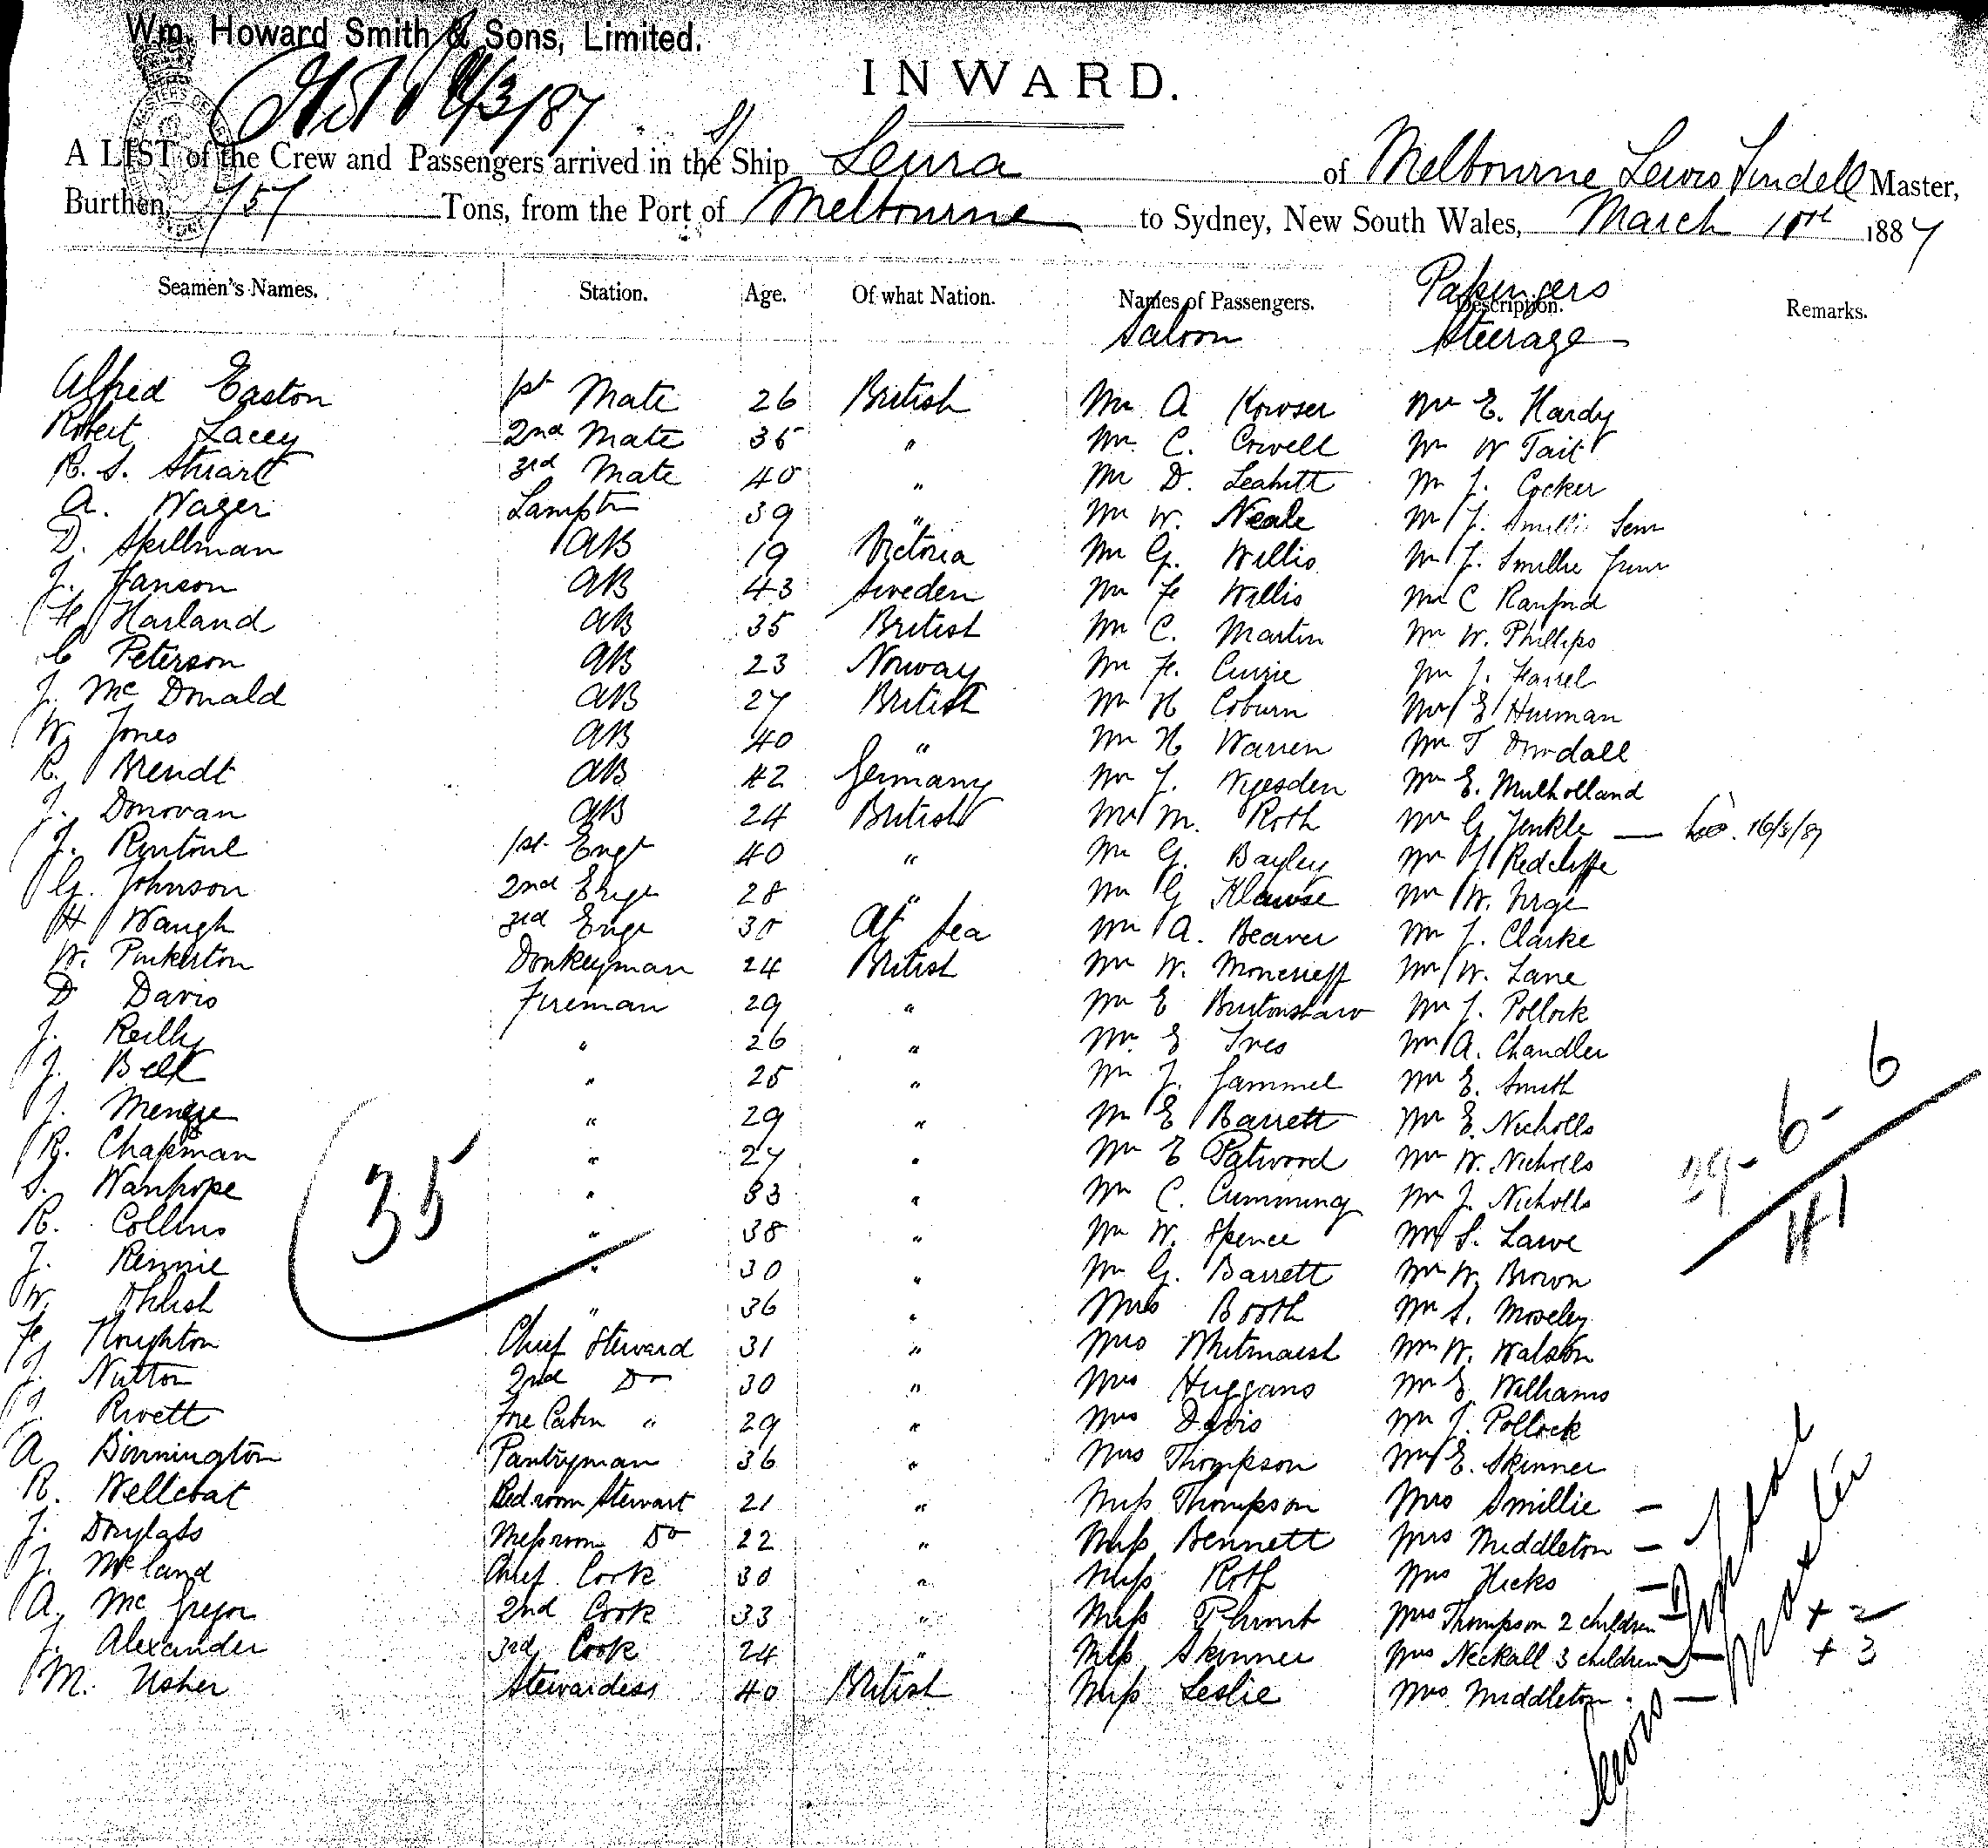 Wm. Howard Smith & Sons, Limited.
INWARD.
A LIST of the Crew and Passengers arrived in the Ship Leura of Melbourne Lewis Lindell Master,
Burthen, 757 Tons, from the Port of Melbourne to Sydney, New South Wales, March 10th 1887
Seamen's Names. Station. Age. Of what Nation. Names of Passengers. Description. Remarks.
Saloon Passengers Steerage
Alfred Easton 1st Mate 26 British Mr A Howser Mr E. Hardy
Robert Lacey 2nd Mate 35 " Mr C. Crowell Mr W Tait
R. S. Stuart 3rd Mate 40 " Mr D. Leahitt Mr J. Cocker
A. Wager Lamptr 39 " Mr W. Neale Mr J. Smillie Senr
D. Skillman AB 19 Victoria Mr G. Willis Mr J. Smillie Junr
J. Janson AB 43 Sweden Mr F Willis Mr C Ranford
H Harland AB 35 British Mr C. Martin Mr W. Phillips
C Peterson AB 23 Norway Mr F. Currie Mr J. Farrel
J. McDonald AB 27 British Mr H Coburn Mr E Hurman
W Jones AB 40 " Mr H Warren Mr T Dowdall
R. Brendt AB 42 Germany Mr J. Mr E. Mulholland
J. Donovan AB 24 British Mr M. Roth Mr G Jenkle — 16/3/87
J. Rintoul 1st Engr 40 " Mr G. Bayley Mr J Redcliffe
G. Johnson 2nd Engr 28 " Mr G Klawse Mr W.
H Waugh 3rd Engr 30 At Sea Mr A. Beaver Mr J. Clarke
W. Pinkerton Donkeyman 24 British Mr W. Moncrieff Mr W. Lane
D Davis Fireman 29 " Mr E Brutonshaw Mr J. Pollock
J. Reilly " 26 " Mr E Ives Mr A. Chandler
J. Bell " 25 " Mr J. Gammel Mr E. Smith
J. Menzie " 29 " Mr E Barrett Mr E. Nicholls
R. Chapman " 27 " Mr E Patwood Mr W. Nicholls
S. Wanhope " 33 " Mr C. Cumming Mr J. Nicholls
R. Collins " 38 " Mr W. Spence Mr S. Lawe
J. Rennie " 30 " Mr G. Barrett Mr W. Brown
W. " 36 " Mrs Booth Mr S. Moseley
F Houghton Chief Steward 31 " Mrs Whitmarsh Mr W. Watson
J. Nutton 2nd Do 30 " Mrs Huggans Mr E. Williams
J. Rivett Fore Cabin " 29 " Mrs Davis Mr J. Pollock
A Binnington Pantryman 36 " Mrs Thompson Mr E. Skinner
R. Wellcoat Bedroom Stewart 21 " Miss Thompson Mrs Smillie —
J. Douglass Messroom Do 22 " Miss Bennett Mrs Middleton —
J. McLand Chief Cook 30 " Miss Roth Mrs Hicks —
A. McGregor 2nd Cook 33 " Miss Plumb Mrs Thompson 2 children — + 2
J. Alexander 3rd Cook 24 " Miss Skinner Mrs Neckall 3 children — + 3
M. Usher Stewardess 40 British Miss Leslie Mrs Middleton —
35
29-6-6
41
Lewis
Master